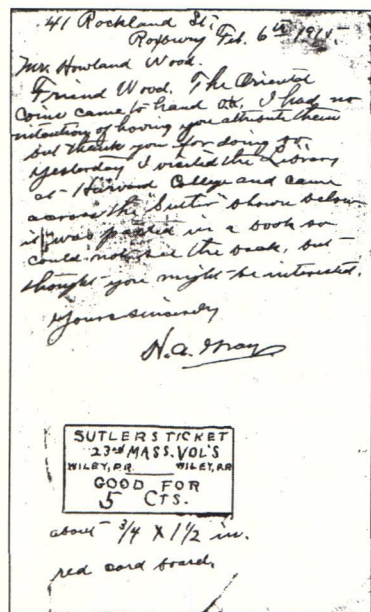 41 Rockland St.
Roxbury Feb. 6th 1915
Mr. Howland Wood.
Friend Wood. The Oriental
Coins came to hand OK. I had no
intention of having you attribute them
but thank you for doing so.
Yesterday I visited the Library
at Harvard College and came
across the "Sutler" shown below
it was pasted in a book so
could not see the back, but
thought you might be interested.
Yours sincerely
H.A. Gray
SUTLERS TICKET
23rd MASS. VOL'S
WILEY, P.R. WILEY, P.R.
GOOD FOR
5 CTS.
about 3/4 X 1 1/2 in.
red card board.